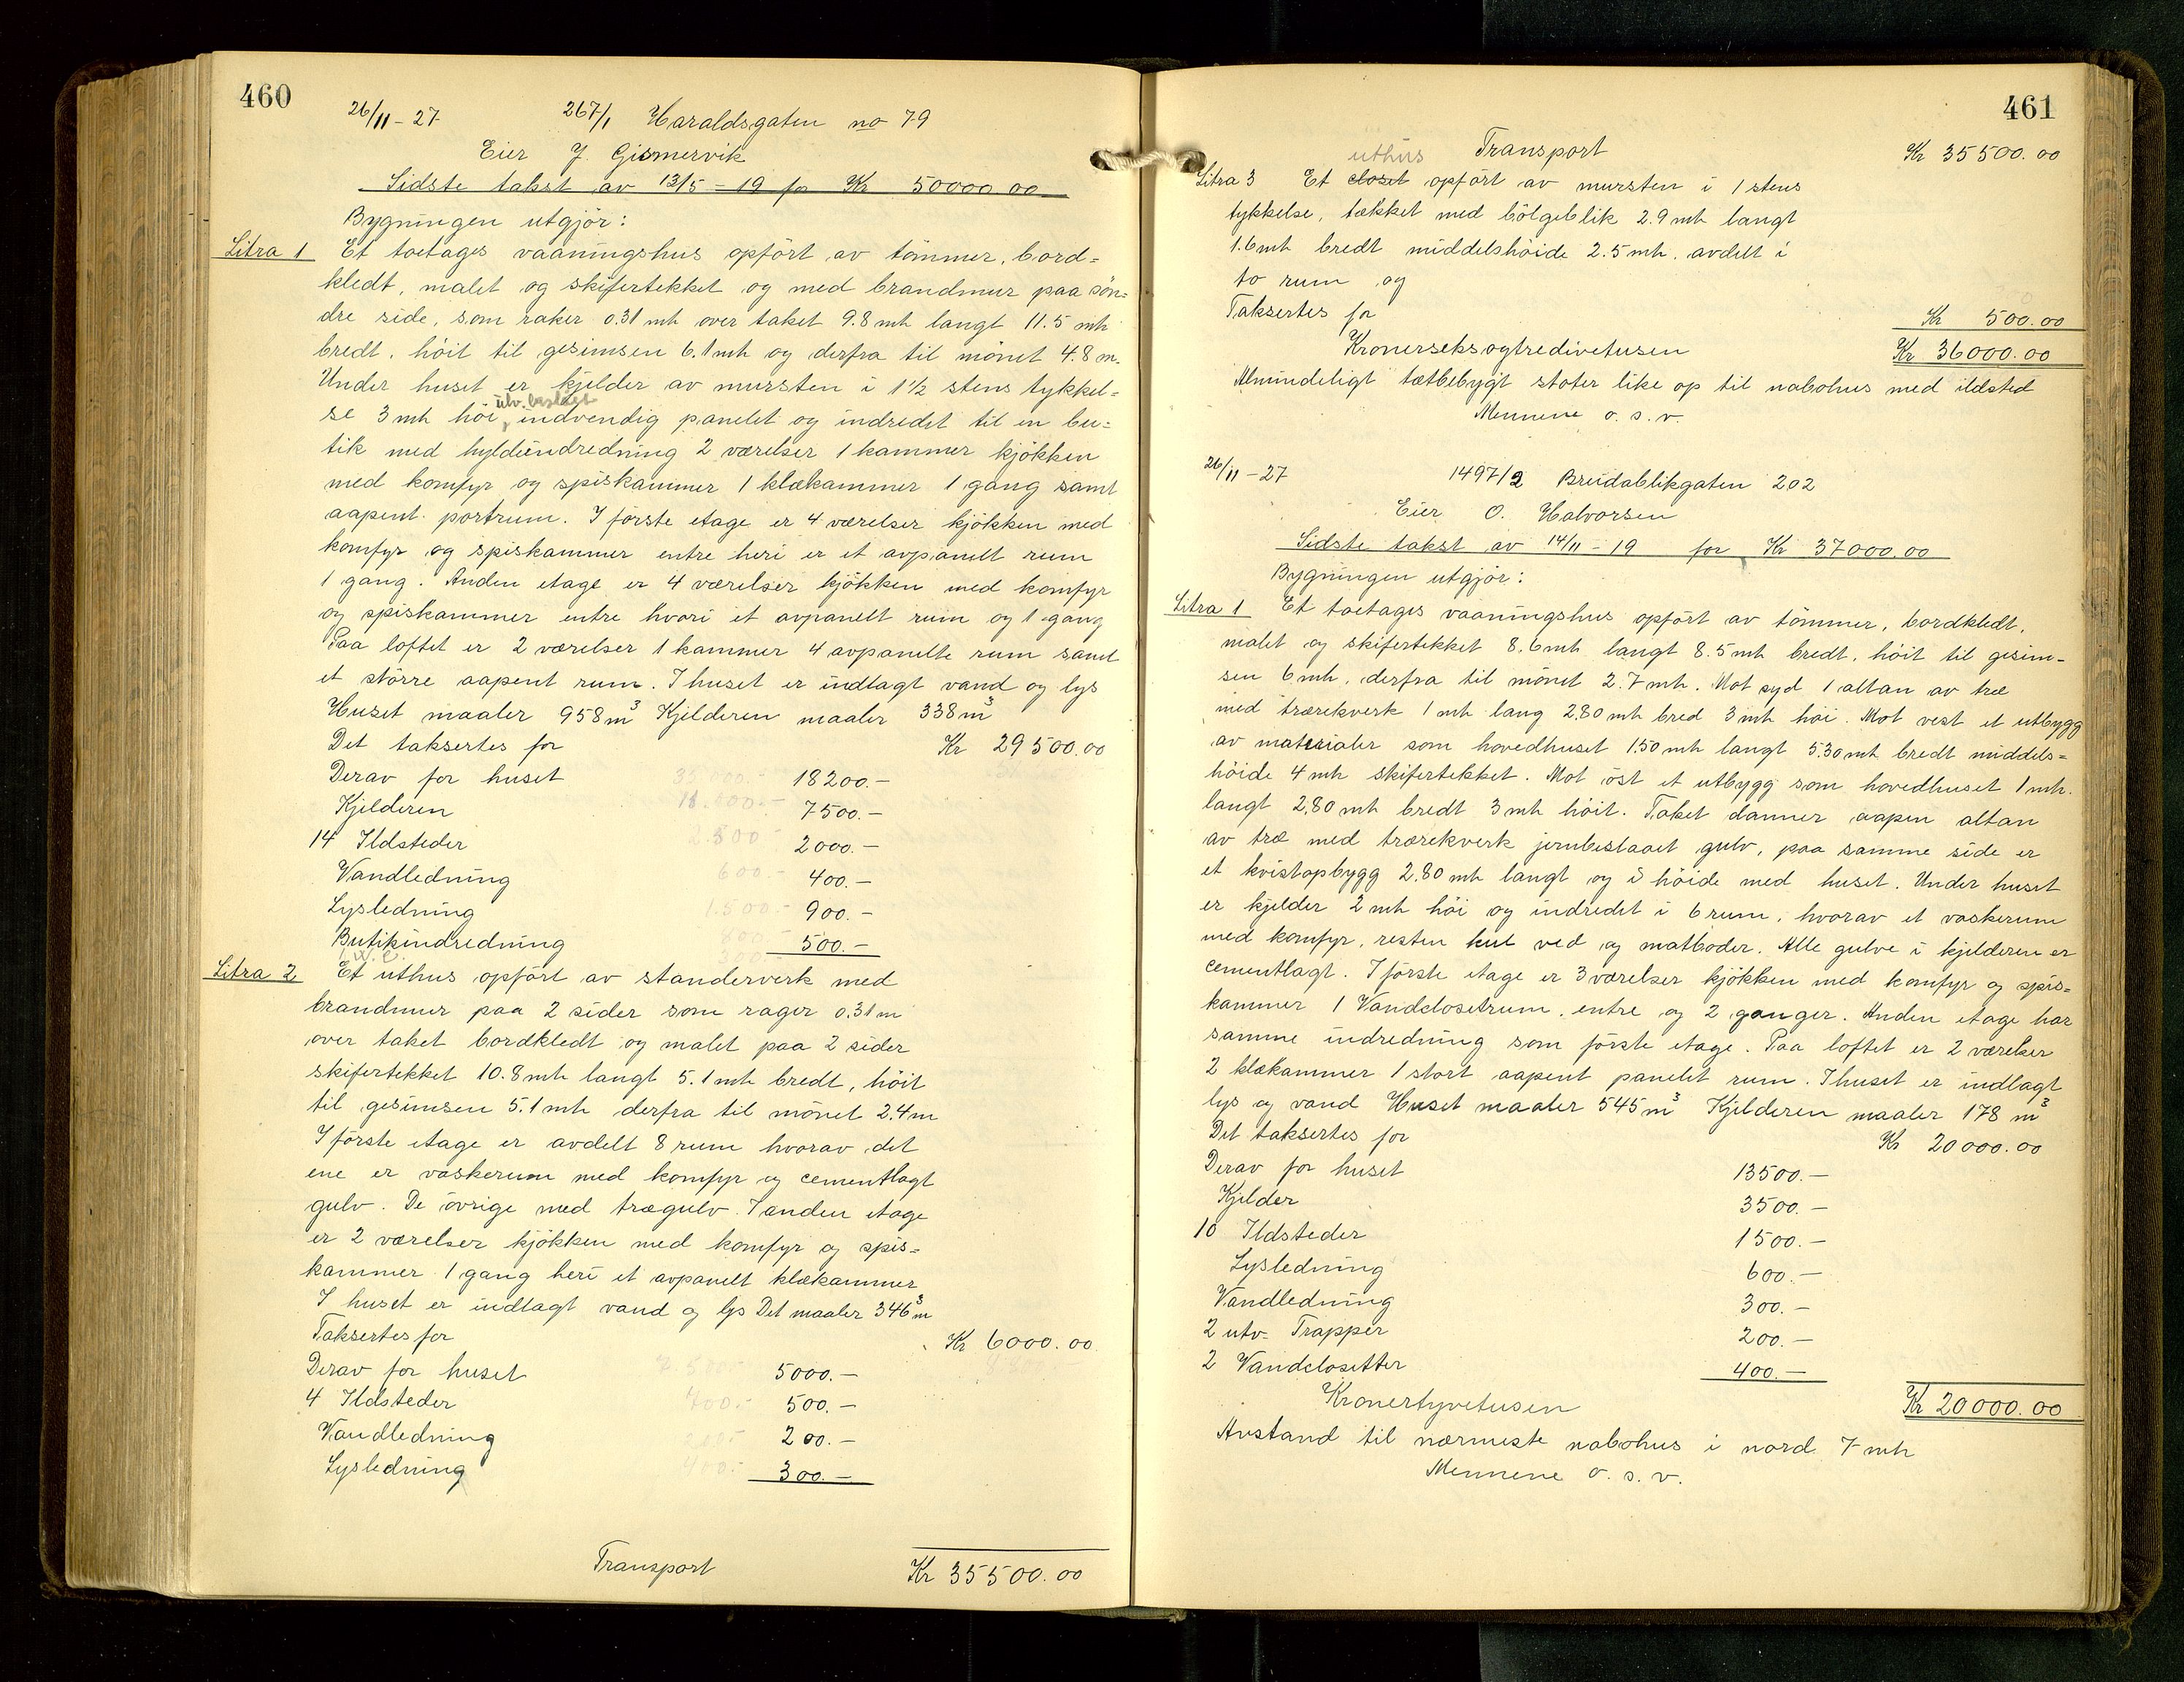 460
26/11 - 27 267/1 Haraldsgaten no 79
Eier J. Gismervik
Sidste takst av 13/5 - 19 for Kr 50000.00
Bygningen utgjör:
Litra 1 Et toetages vaaningshus opfört av tömmer, bord=
kledt, malet og skifertekket og med brandmur paa sön=
dre side, som raker 0.31 mtr over taket 9.8 mtr langt 11.5 mtr
bredt, höit til gesimsen 6.1 mtr og derfra til mönet 4.8 m.
Under huset er kjelder av mursten i 1 1/2 stens tykkel=
utv. beslagt
se 3 mtr höi, indvendig panelet og indredet til en bu=
tik med hyldeindredning 2 værelser 1 kammer kjökken
med komfyr og spiskammer 1 klækammer 1 gang samt
aapent portrum. I förste etage er 4 værelser kjökken med
komfyr og spiskammer entre heri er et avpanelt rum
1 gang. Anden etage er 4 værelser kjökken med komfyr
og spiskammer entre hvori et avpanelt rum og 1 gang
Paa loftet er 2 værelser 1 kammer 4 avpanelte rum samt
et större aapent rum. I huset er indlagt vand og lys
Huset maaler 958 m³ Kjelderen maaler 338 m³
Det taksertes for Kr 29500.00
Derav for huset 35.000.- 18200.-
Kjelderen 11.000.- 7500.-
14 Ildsteder 2.800.- 2000.-
Vandledning 600.- 400.-
Lysledning 1.500.- 900.-
Butikindredning 800.- 500.-
W.C.
Litra 2 Et uthus opfört av standerverk med
brandmur paa 2 sider som rager 0.31 m
over taket bordkledt og malet paa 2 sider
skifertekket 10.8 mtr langt 5.1 mtr bredt, höit
til gesimsen 5.1 mtr derfra til mönet 2.4 m
I förste etage er avdelt 8 rum hvorav det
ene er vaskerum med komfyr og cementlagt
gulv. De övrige med trægulv. I anden etage
er 2 værelser kjökken med komfyr og spis=
kammer 1 gang heri et avpanelt klækammer
I huset er indlagt vand og lys Det maaler 346 m³
Taksertes for Kr 6000.00
Derav for huset 5000.-
4 Ildsteder 500.-
Vandledning 200.-
Lysledning 400.- 300.-
Transport Kr 35500.00
461
uthus Transport Kr 35500.00
Litra 3 Et closet opfört av mursten i 1 stens
tykkelse, tækket med bölgeblik 2.9 mtr langt
1.6 mtr bredt middelshöide 2.5 mtr. avdelt i
to rum og
Taksertes for Kr 500.00
Kronerseksogtredivetusen Kr 36000.00
Almindeligt tætbebygt stöter like op til nabohus med ildsted
Mennene o.s.v.
26/11 - 27 1497/2 Breidablikgaten 202
Eier O. Halvorsen
Sidste takst av 14/11 - 19 for Kr 37000.00
Bygningen utgjör:
Litra 1 Et toetages vaaningshus opfört av tömmer, bordkledt,
malet og skifertekket 8.6 mtr langt 8.5 mtr bredt, höit til gesim-
sen 6 mtr, derfra til mönet 2.7 mtr. Mot syd 1 altan av træ
med trærekverk 1 mtr lang 2.80 mtr bred 3 mtr höi. Mot vest et utbygg
av materialer som hovedhuset 1.50 mtr langt 5.30 mtr bredt middels=
höide 4 mtr skifertekket. Mot öst et utbygg som hovedhuset 1 mtr.
langt 2.80 mtr bredt 3 mtr höit. Taket danner aapen altan
av træ med trærekverk jernbeslaaet gulv, paa samme side er
et kvistopbygg 2.80 mtr langt og i höide med huset. Under huset
er kjelder 2 mtr höi og indredet i 6 rum, hvorav et vaskerum
med komfyr, resten kul ved og matboder. Alle gulve i kjelderen er
cementlagt. I förste etage er 3 værelser kjökken med komfyr og spis=
kammer 1 Vandclosetrum, entre og 2 ganger. Anden etage har
samme indredning som förste etage. Paa loftet er 2 værelser
2 klækammer 1 stort aapent panelet rum. I huset er indlagt
lys og vand Huset maaler 545 m³ Kjelderen maaler 178 m³
Det taksertes for Kr 20000.00
Derav for huset 13500.-
Kjelder 3500.-
10 Ildsteder 1500.-
Lysledning 600.-
Vandledning 300.-
2 utv. Trapper 200.-
2 Vandclosetter 400.-
Kronertyvetusen Kr 20000.00
Avstand til nærmeste nabohus i nord 7 mtr
Mennene o.s.v.